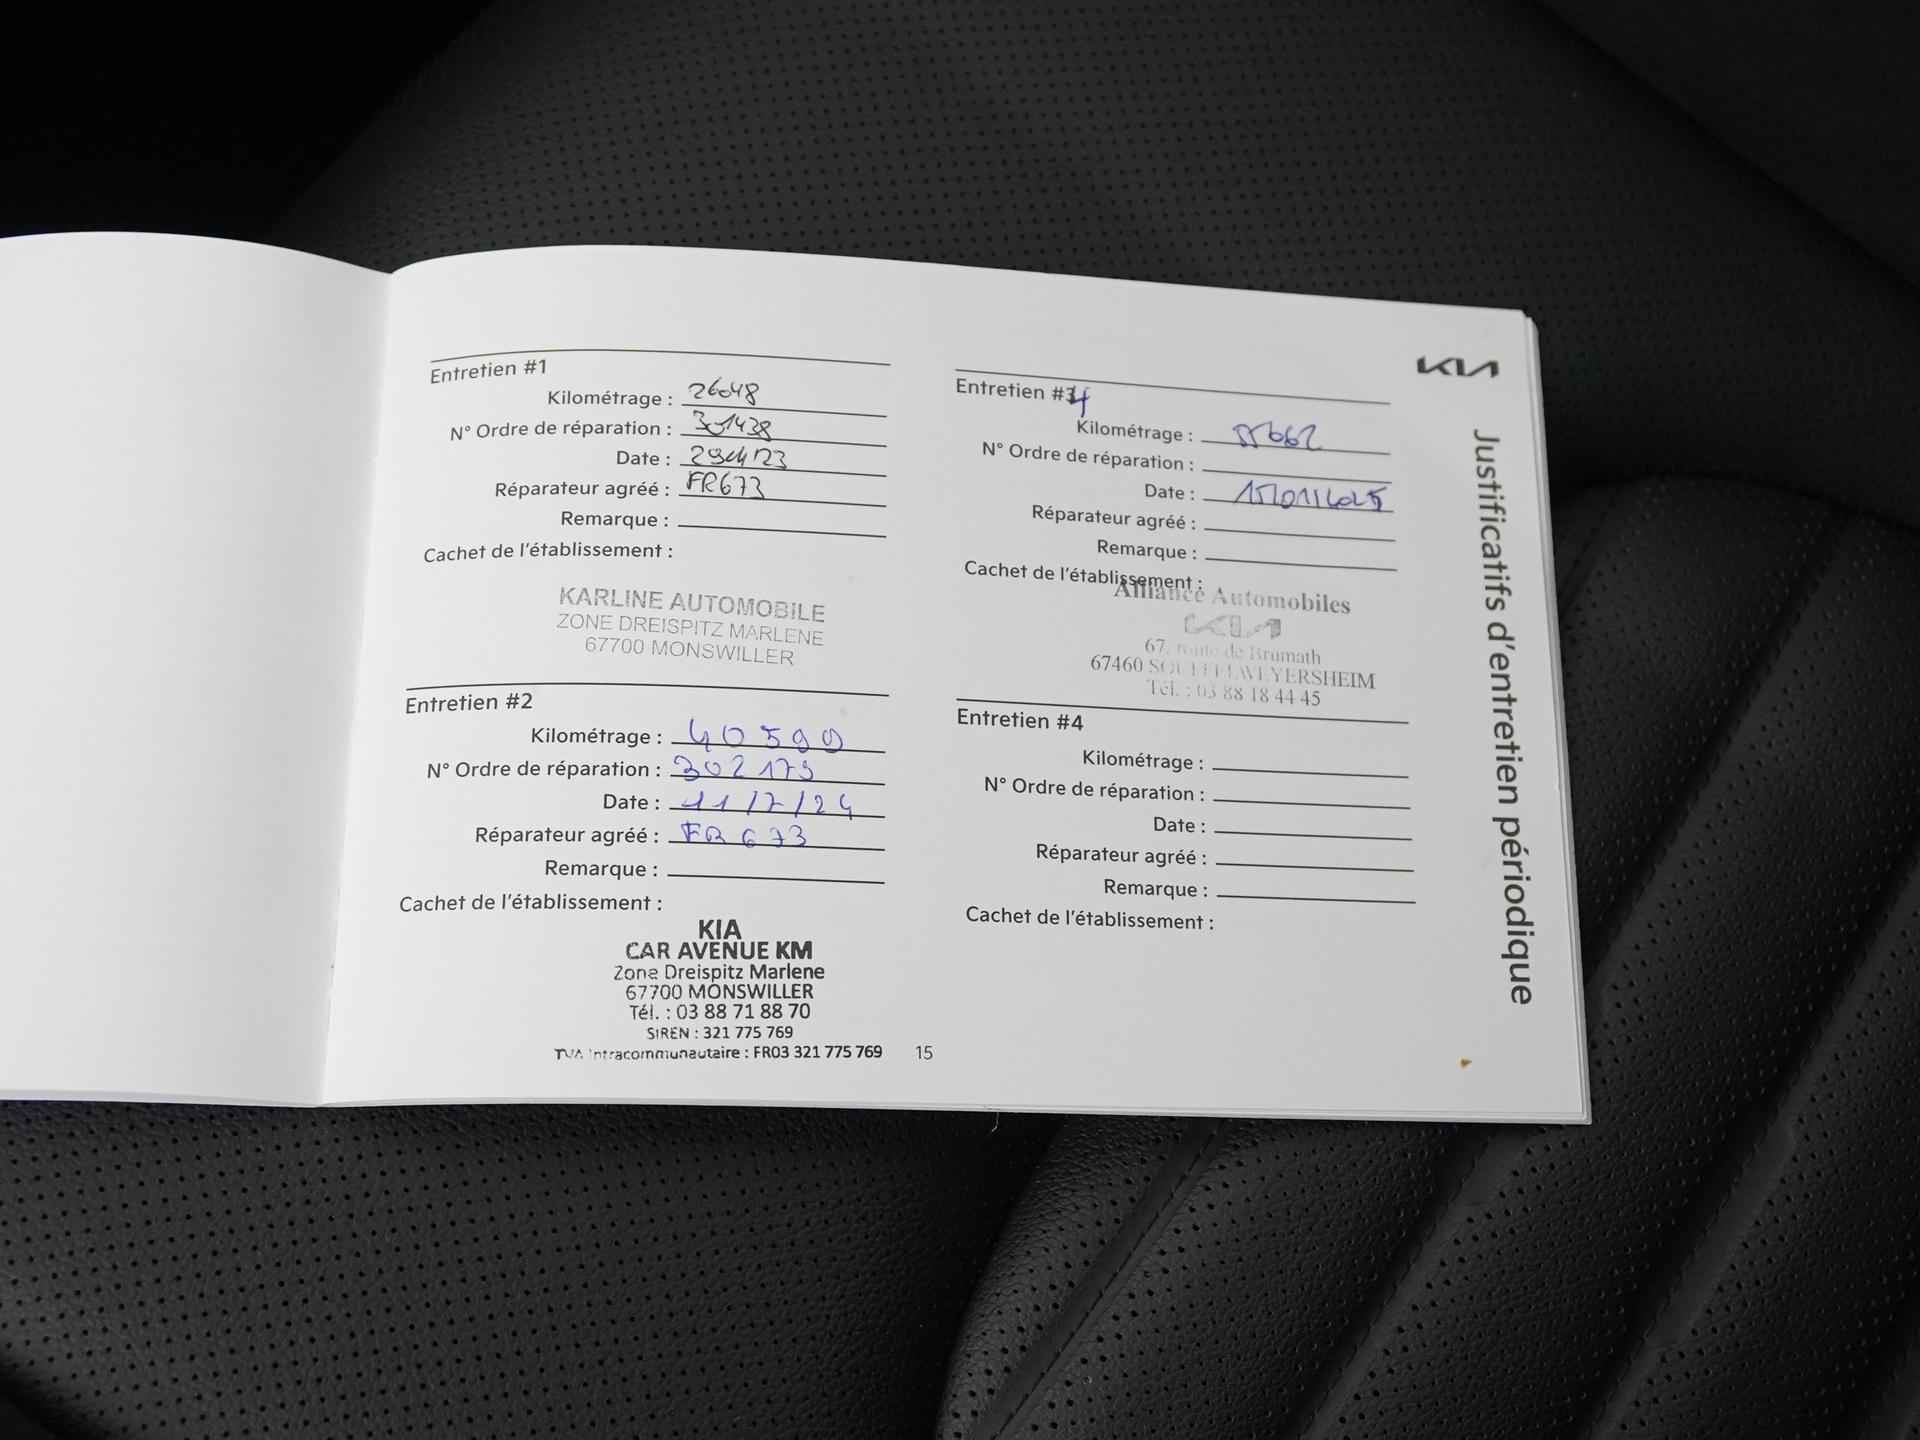 Entretien #1
Kilométrage : 26048
N° Ordre de réparation : 301438
Date :
Réparateur agréé : FR673
Remarque :
Cachet de l'établissement :
KARLINE AUTOMOBILE
ZONE DREISPITZ MARLENE
67700 MONSWILLER
Entretien #2
Kilométrage : 40590
N° Ordre de réparation : 302179
Date : 11/7/24
Réparateur agréé : FR673
Remarque :
Cachet de l'établissement :
KIA
CAR AVENUE KM
Zone Dreispitz Marlene
67700 MONSWILLER
Tél. : 03 88 71 88 70
SIREN : 321 775 769
TVA Intracommunautaire : FR03 321 775 769
15
Entretien #4
Kilométrage : 55662
N° Ordre de réparation :
Date :
Réparateur agréé :
Remarque :
Cachet de l'établissement :
Alliance Automobiles
KIA
67, route de Brumath
67460 SOUFFELWEYERSHEIM
Tél. : 03 88 18 44 45
Entretien #4
Kilométrage :
N° Ordre de réparation :
Date :
Réparateur agréé :
Remarque :
Cachet de l'établissement :
KIA
Justificatifs d'entretien périodique